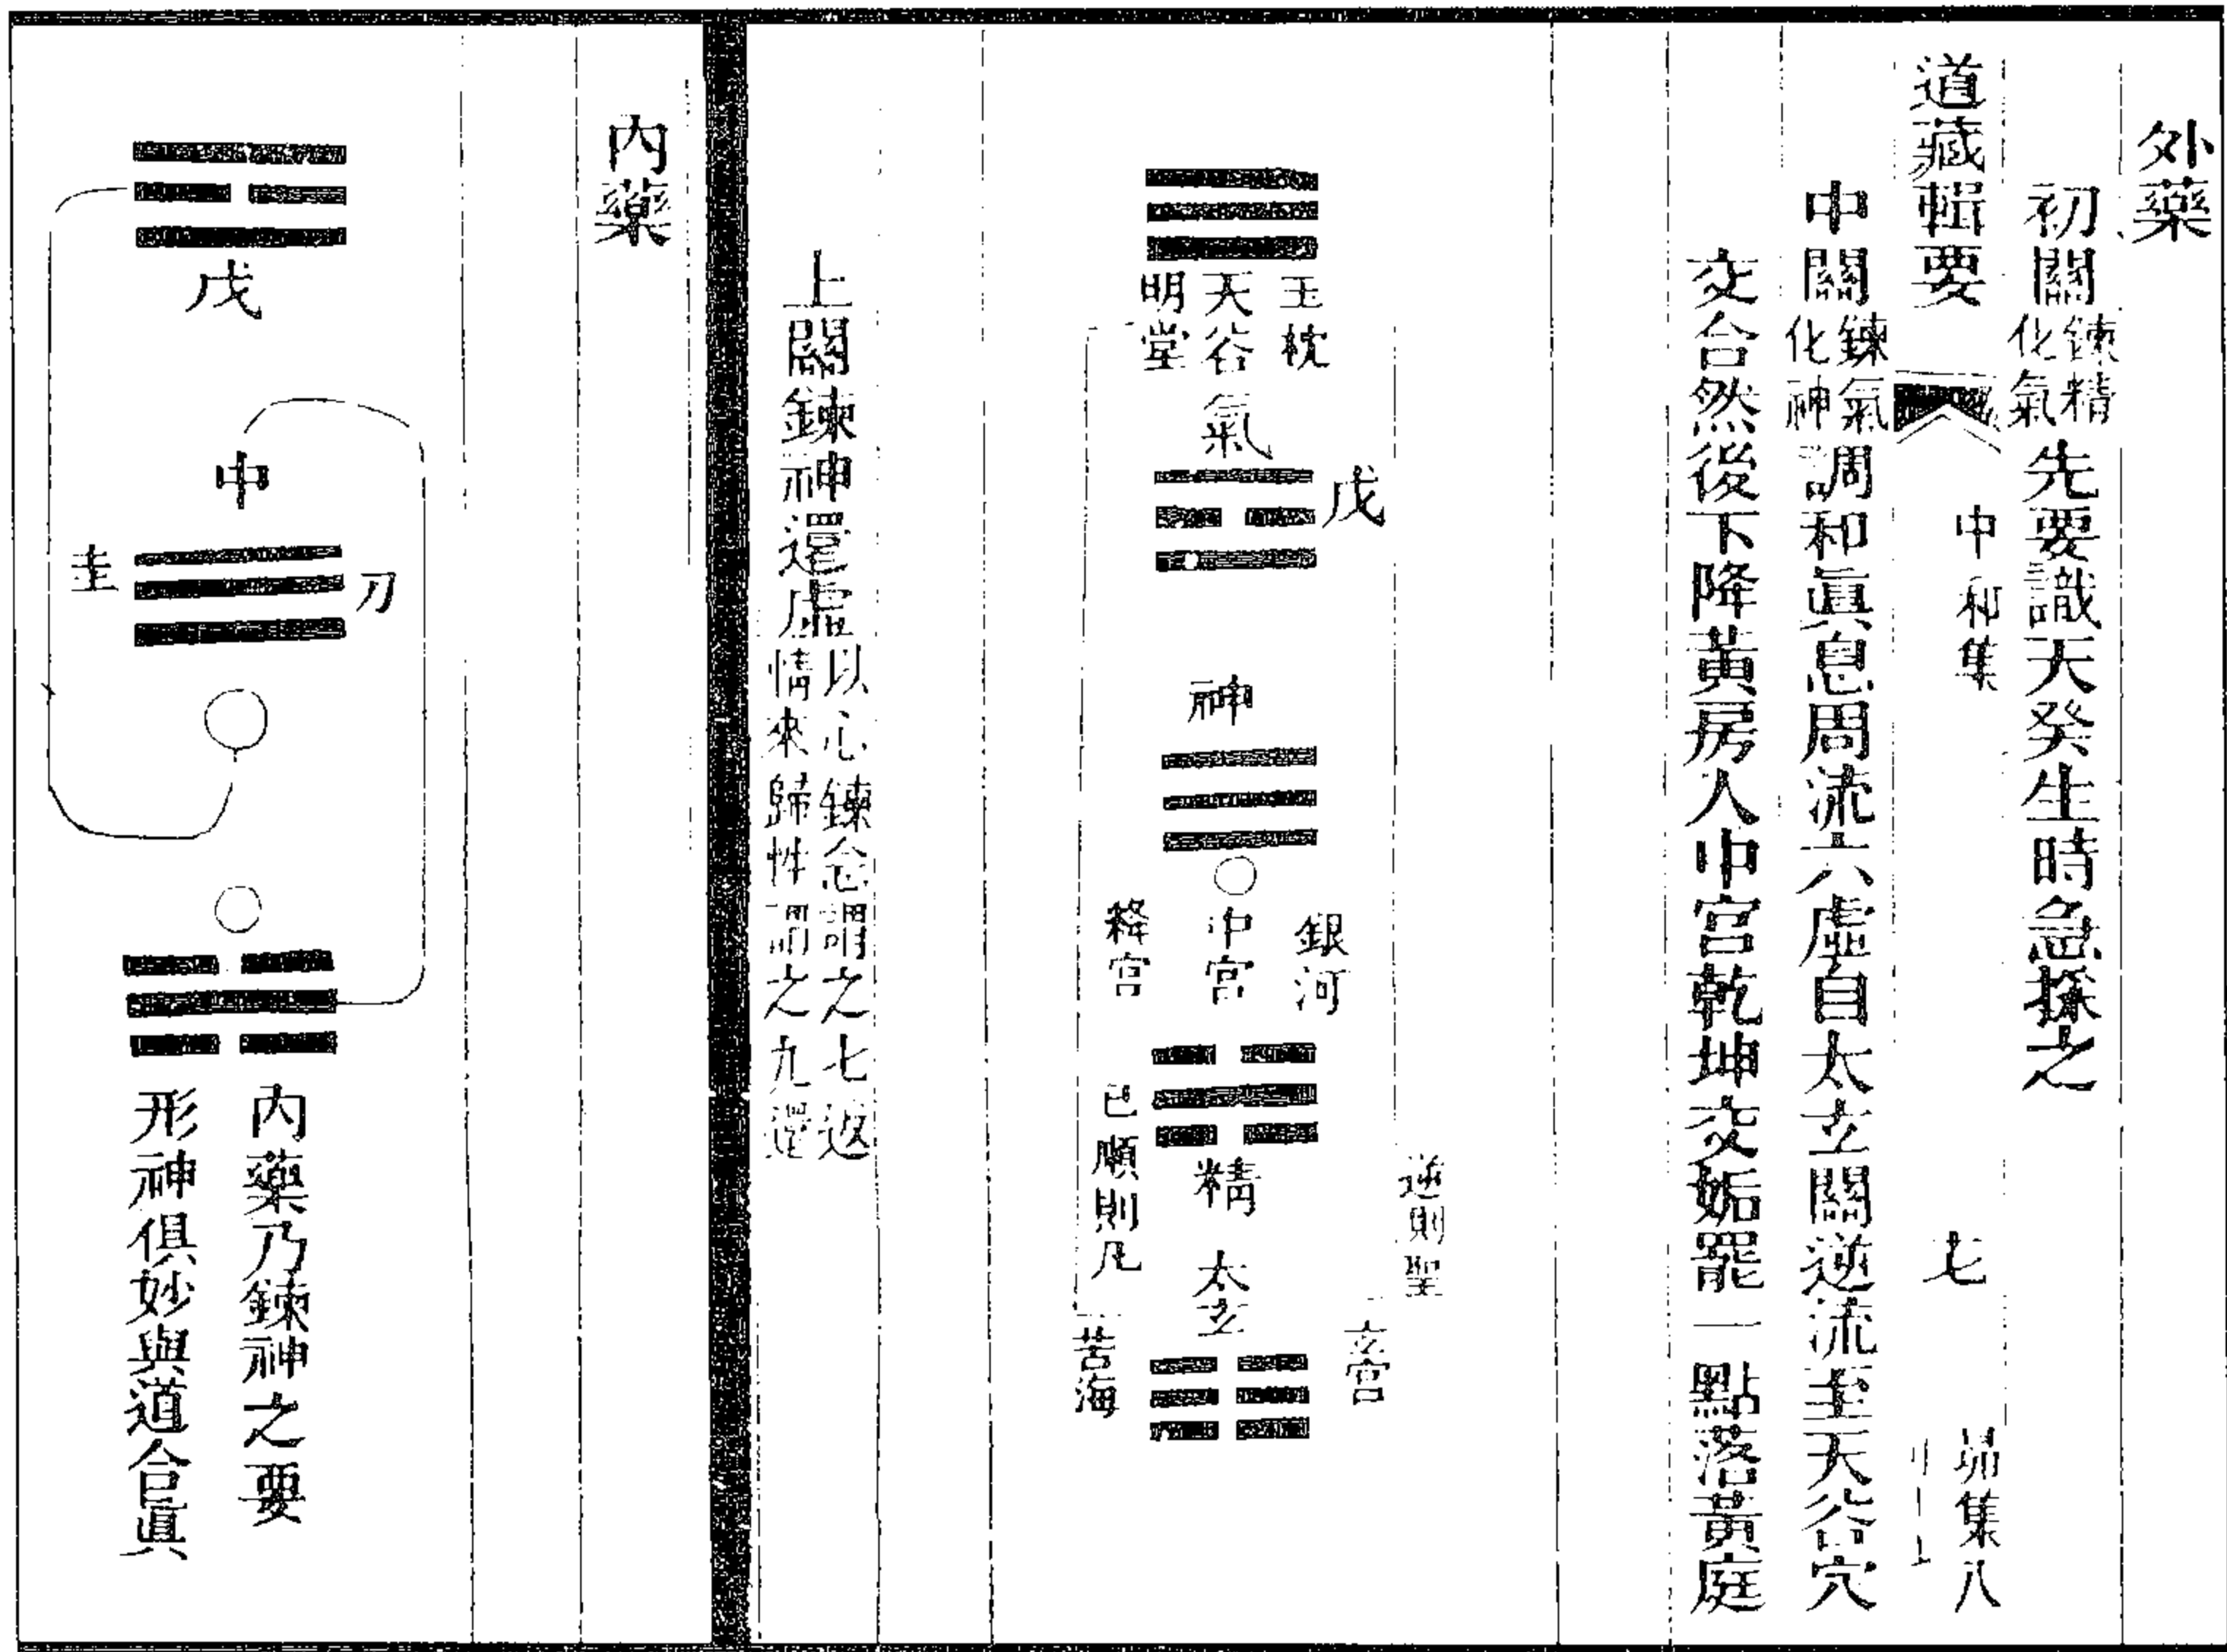 外藥
初關鍊精化氣先要識天癸生時急採之
道藏輯要 中和集 七 昴集八
中關鍊氣化神調和眞息周流六虛自太玄關逆流至天谷穴
交合然後下降黃房入中宮乾坤交姤罷一點落黃庭
玉枕
天谷
明堂
氣
戊
神
銀河
中宮
絳宮
精
逆則聖
己順則凡
太玄
玄宮
苦海
上關鍊神還虛以心鍊念謂之七返
情來歸性謂之九還
內藥
戊
中
刀
圭
內藥乃鍊神之要
形神俱妙與道合眞